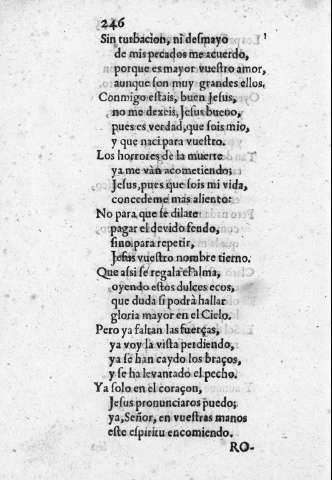 246
Sin turbacion, ni desmayo
de mis pecados me acuerdo,
porque es mayor vuestro amor,
aunque son muy grandes ellos.
Conmigo estais, buen Jesus,
no me dexeis, Jesus bueno,
pues es verdad, que sois mio,
y que naci para vuestro.
Los horrores de la muerte
ya me vàn acometiendo;
Jesus, pues que sois mi vida,
concedeme mas aliento:
No para que se dilate
pagar el devido feudo,
sino para repetir,
Jesus vuestro nombre tierno.
Que assi se regala el alma,
oyendo estos dulces ecos,
que duda si podrà hallar
gloria mayor en el Cielo.
Pero ya faltan las fuerças,
ya voy la vista perdiendo,
ya se han caydo los braços,
y se ha levantado el pecho.
Ya solo en el coraçon,
Jesus pronunciaros puedo;
ya, Señor, en vuestras manos
este espiritu encomiendo.
RO-